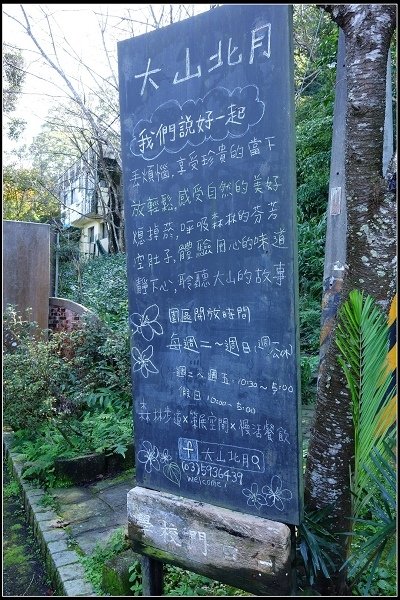 大山北月
我們說好一起
丟煩惱,享受珍貴的當下
放輕鬆,感受自然的美好
熄掉菸,呼吸森林的芬芳
空肚子,體驗用心的味道
靜下心,聆聽大山的故事
園區開放時間
每週二～週日(週一公休)
週二～週五:10:30～5:00
假日 10:00～5:00
森林步道×策展空間×慢活餐飲
大山北月
(03)5936439
welcome!
學校門